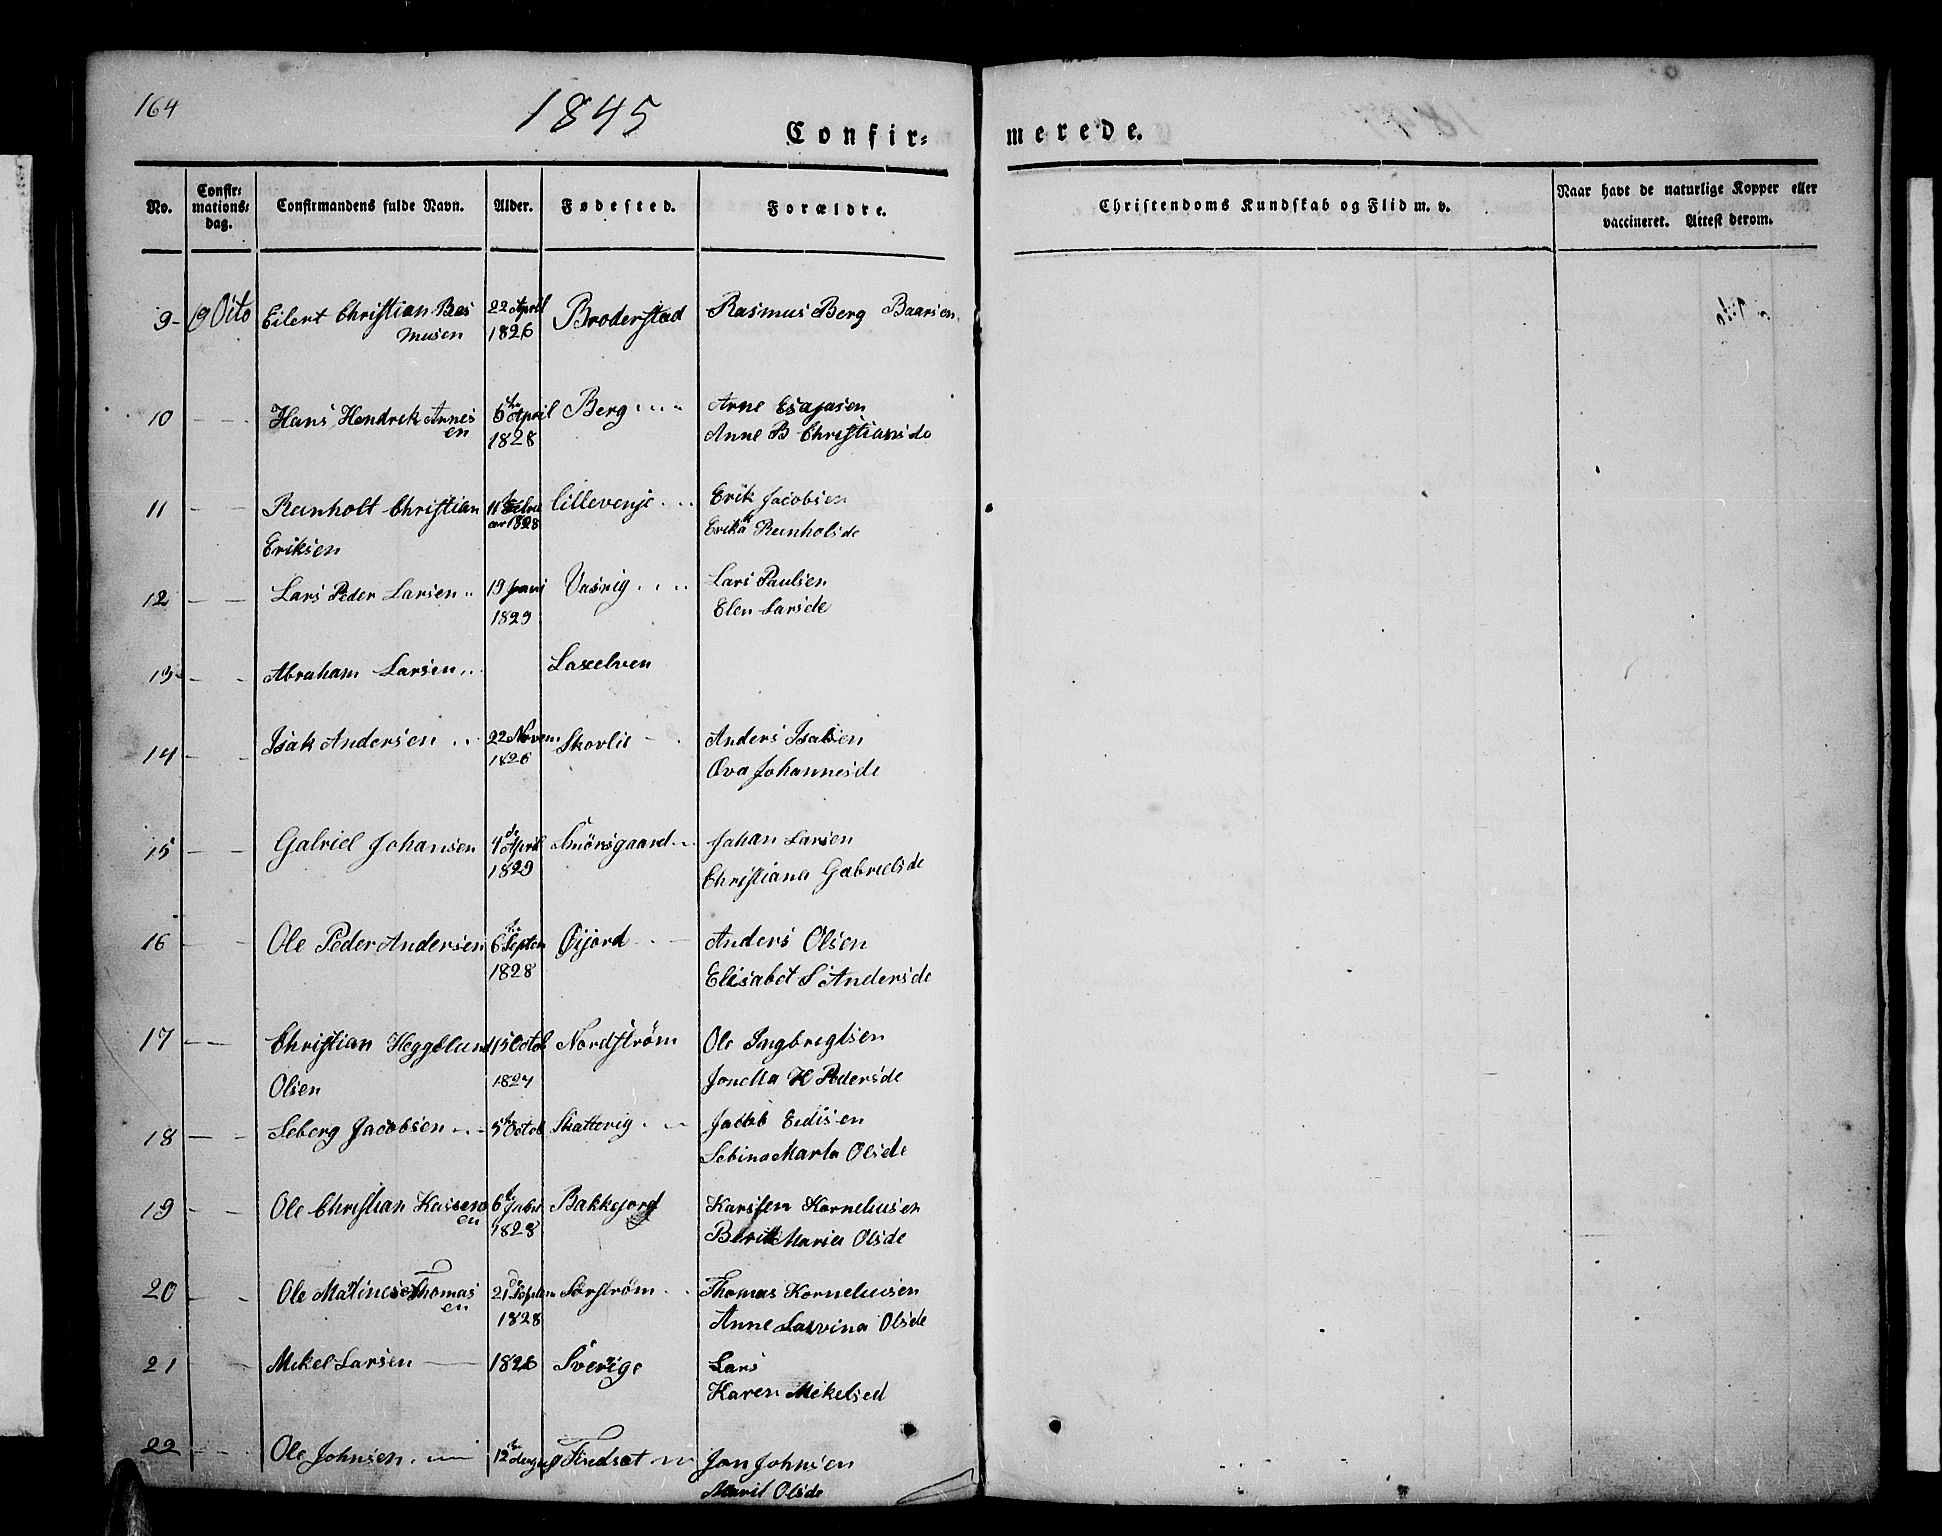 164
1845
Confir=
merede.
No.
Confir=
mations=
dag.
Confirmandens fulde Navn.
Alder.
Fødested.
Forældre.
Christendoms Kundskab og Flid m. v.
Naar havt de naturlige Kopper eller
vaccineret. Attest derom.
9 - 19 Octo Eilert Christian Ras 22 April Broderstad Rasmus Berg Baarsen
musen 1826
10 - - Hans Hendrek Arnes 6 April Berg Arne Esajasen
en 1828 Anne B Christiansde
11 - - Reinholt Christian 11 1828 Lillevenje Erik Jacobsen
Eriksen Erika Reinholsde
12 - - Lars Peder Larsen 19 1829 Vasvig Lars Paulsen
Elen Larsde
13 - - Abraham Larsen Laxelven
14 - - Isak Andersen 22 Novem Skovlie Anders Isaksen
1826 Ova Johannesde
15 - - Gabriel Johansen 4 de April Smörsgaard Johan Larsen
1829 Christiana Gabrielsde
16 - - Ole Peder Andersen 6 Septem Øijord Anders Olsen
1828 Elisabet S Andersde
17 - - Christian Heggelund 15 Octob Nordström Ole Ingbregtsen
Olsen 1827 Jonetta H Pedersde
18 - - Seberg Jacobsen 5 Octob Skattevig Jacob Endisen
Sebina Marta Olsde
19 - - Ole Christian Kassen 6 Bakkejord Karsten Korneliusen
en 1828 Berit Maria Olsde
20 - - Ole Matines Thomas 21 Septem Sørström Thomas Korneliusen
en 1828 Anne Lavina Olsde
21 - - Mekel Larsen 1826 Sverige Lars
Karen Mekelsed
22 - - Ole Johnsen 12 Augug Findset Jon Johnsen
Marit Olsde